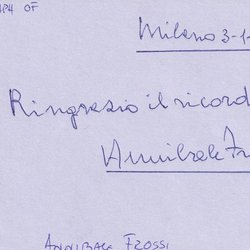 APH OF
Milano 3-1-
Ringrazio il ricord
Annibale Fr
ANNIBALE FROSSI